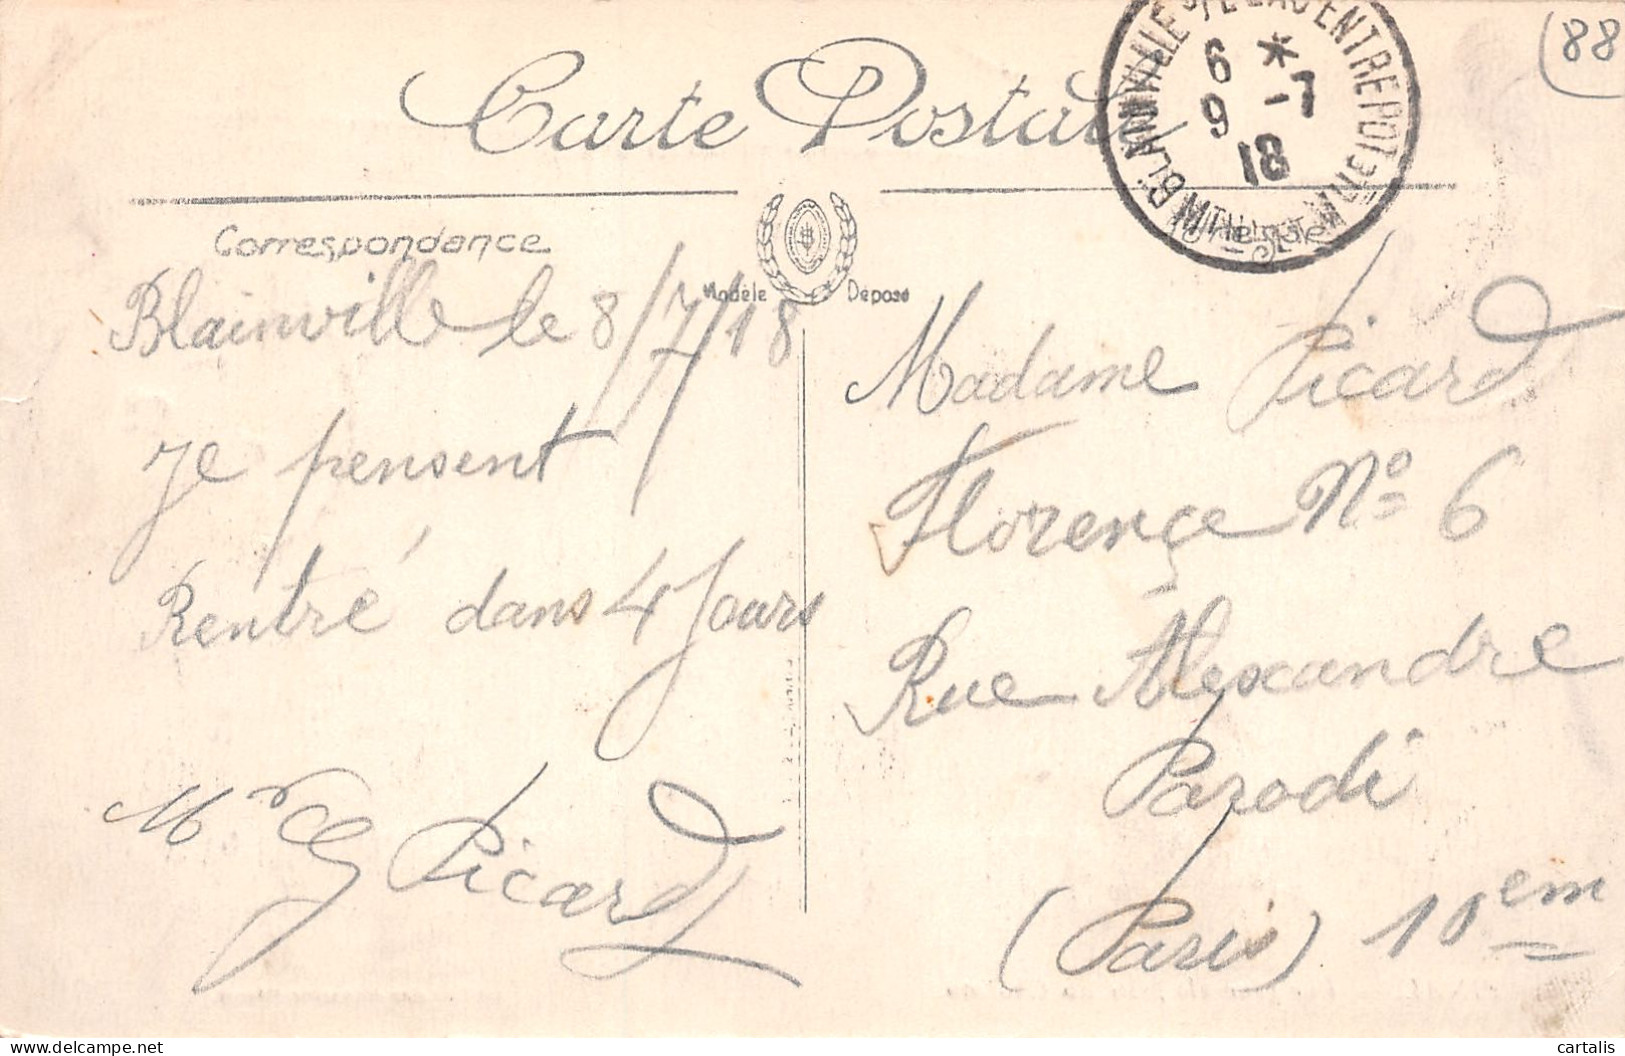 (88
Carte Postale
BLAINVILLE S/L'EAU ENTREPOT
6 *
9 -7
18
Correspondance
Modèle Déposé
Blainville le 8/7/18
Je pensent
Rentré dans 4 Jours
Picard
Madame Picard
Florençe Nº 6
Rue Alexandre
Parodi
(Paris) 10em
cartalis